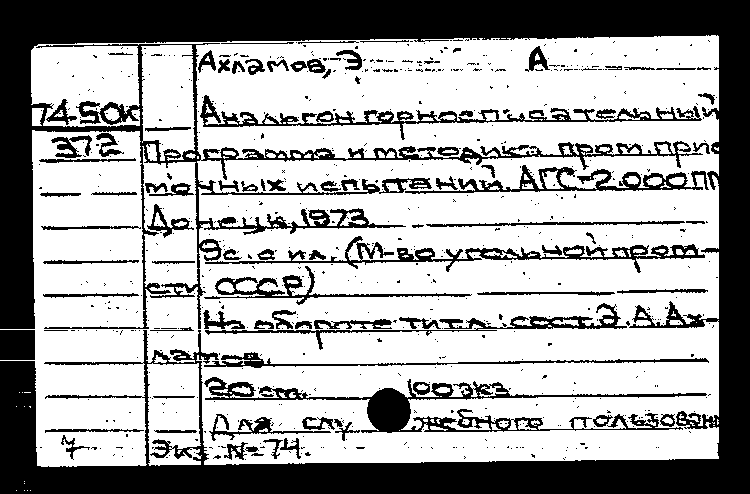 Ахламов, Э А
74-50к
372
Анальгон горноспасательный
Программа и методика пром. прие
точных испытаний. АГС-2.000ПМ
Донецк, 1973.
9с. с ил. (М-во угольной пром-
сти СССР)
На обороте тит.л: сост. Э.А. Ах-
ламов.
20 см. 100 экз
Для служебного пользован
7 Экз. №74.